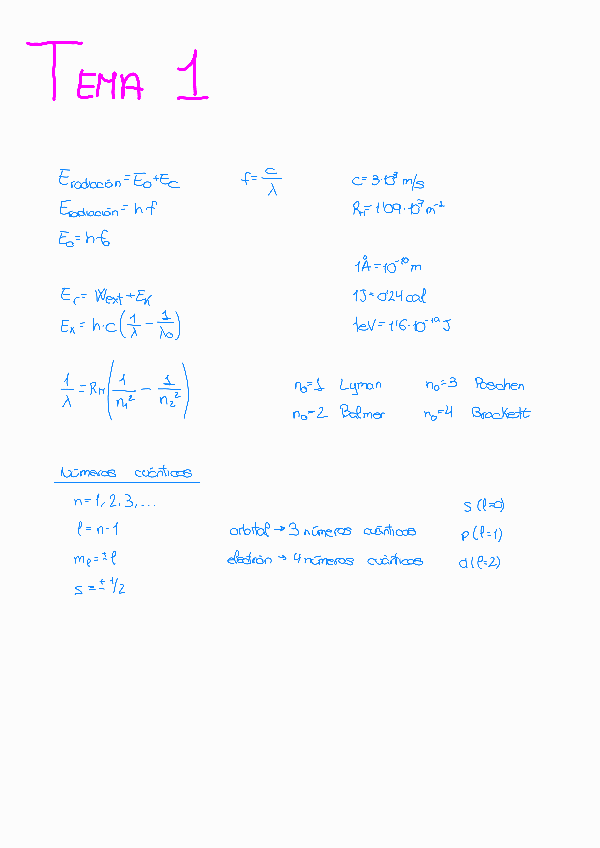 TEMA 1
E radiación = E₀ + Ec    f = c/λ    c = 3·10⁸ m/s
E radiación = h·f    R_H = 1'09·10⁷ m⁻²
E₀ = h·f₀
1Å = 10⁻¹⁰ m
Er = Wext + Ek    1J = 0'24 cal
Ek = h·c (1/λ − 1/λ₀)    1eV = 1'6·10⁻¹⁹ J
1/λ = R_H (1/n₁² − 1/n₂²)    n₀=1 Lyman    n₀=3 Paschen
n₀=2 Balmer    n₀=4 Brackett
Números cuánticos
n = 1, 2, 3, ...    s (l=0)
l = n-1    orbital → 3 números cuánticos    p (l=1)
mₗ = ± l    electrón → 4 números cuánticos    d (l=2)
s = ± 1/2